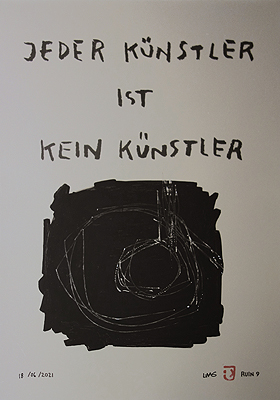 JEDER KÜNSTLER
IST
KEIN KÜNSTLER
18/06/2021
UMS
RUIN 9